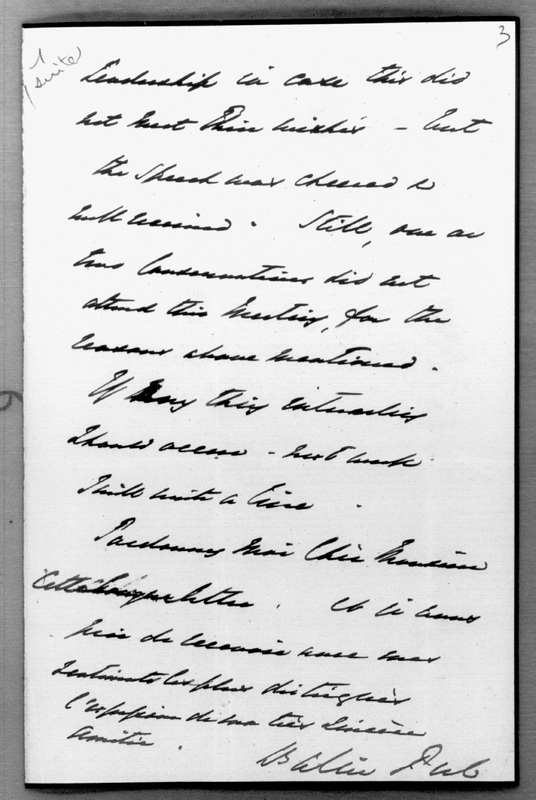 3
1
suite
Leadership in case this did
not meet their wishes – but
the speech was cheered &
well received. Still, one or
two Conservatives did not
attend this meeting, for the
reasons above mentioned.
If any thing interesting
should occur – next week
I will write a line.
Pardonnez moi Cher Monsieur
Cette longue lettre. Et je vous
prie de recevoir avec mes
sentiments les plus distingués
l'expression de ma très sincère
amitié.